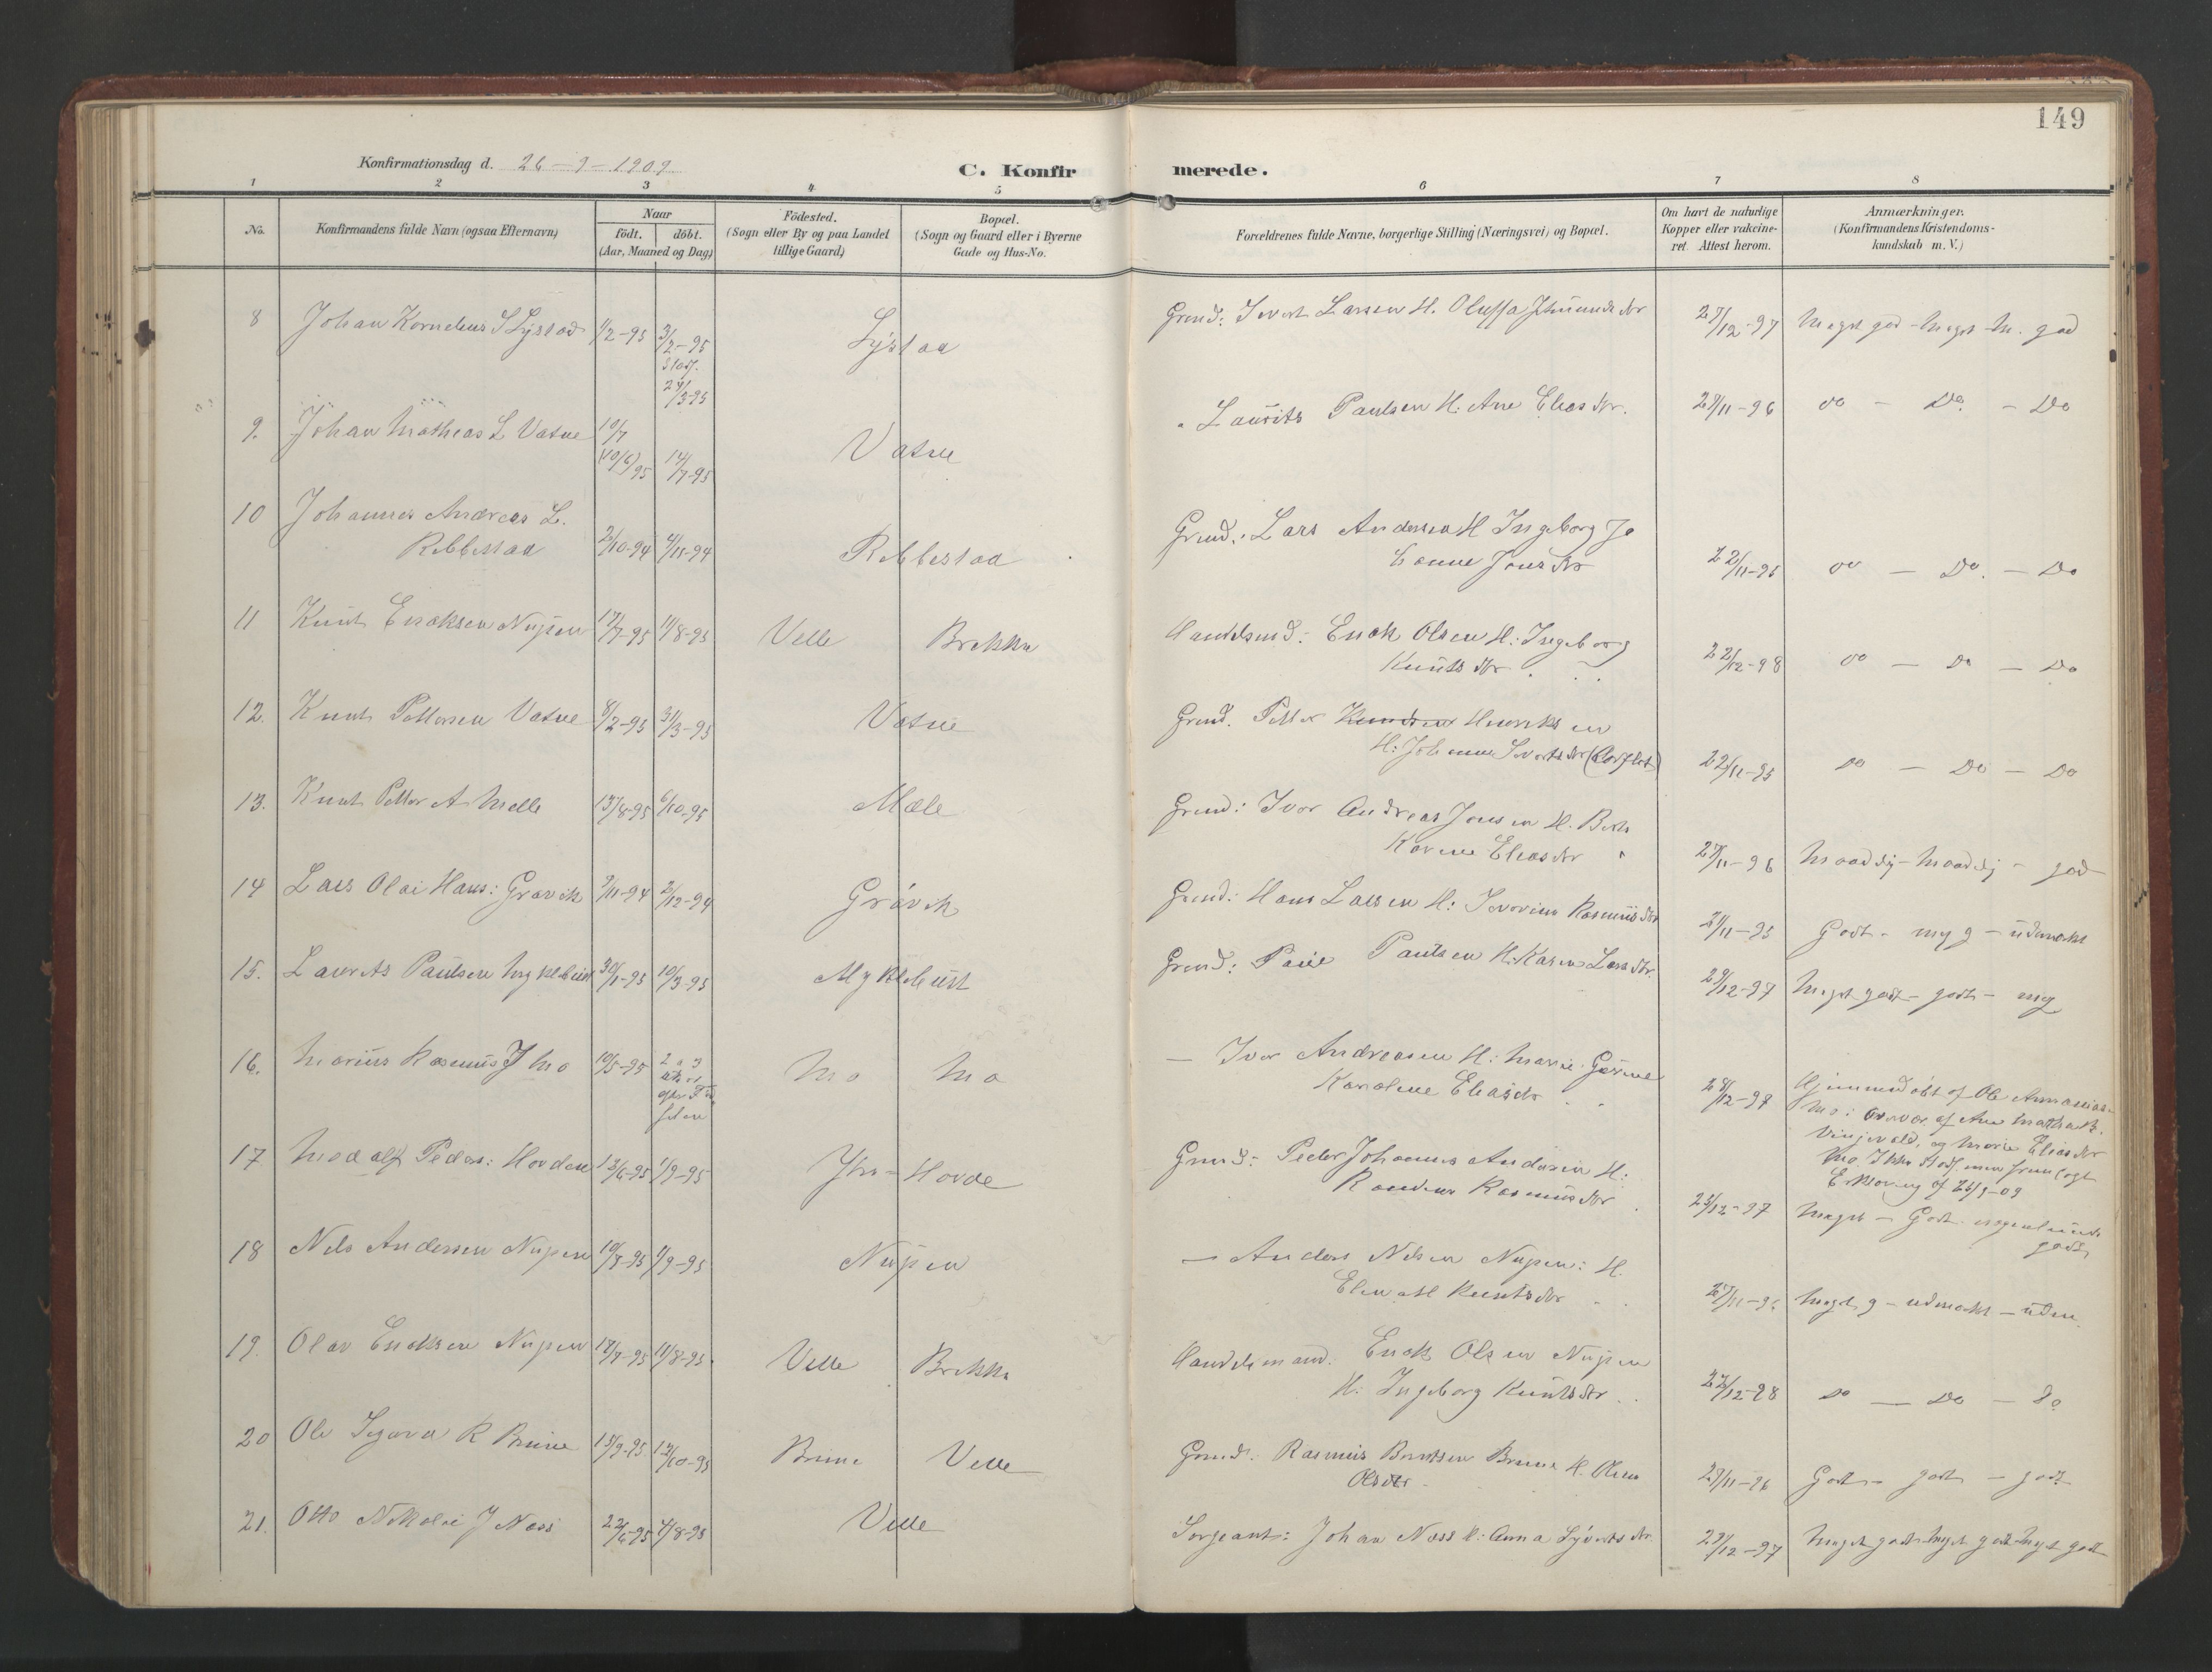 149
Konfirmationsdag d. 26-9-1909
C. Konfirmerede.
1 2 3 4 5 6 7 8
No.
Konfirmandens fulde Navn (ogsaa Efternavn)
Naar
født. døbt.
(Aar, Maaned og Dag)
Födested.
(Sogn eller By og paa Landet
tillige Gaard)
Bopæl.
(Sogn og Gaard eller i Byerne
Gade og Hus-No.
Forældrenes fulde Navne, borgerlige Stilling (Næringsvei) og Bopæl.
Om havt de naturlige
Kopper eller vakcine-
ret. Attest herom.
Anmærkninger.
(Konfirmandens Kristendoms-
kundskab m. V.)
8 Johan Kornelius S Lystad 1/2-95 3/2-95 Lystad Grmd: Sivert Larsen H. Oluffa 27/12-97 Meget god - Meget - M. god
Stadf.
24/3-95
9. Johan Mathias L Vatne 10/7 Vatne " Laurits Paulsen H. Ane Eliasdtr. 28/11-96 do - Do - Do
(10/6) 95 14/7-95
10 Johannes Andreas L. Grmd: Lars Andersen H Ingeborg Jo
Rebbestad 2/10-94 4/11-94 Rebbestad hanne Jonsdtr 22/11-95 do - Do. - Do
11 Knut Eriksen Nupen 17/7-95 11/8-95 Velle Brekke Handelsmd: Erik Olsen H: Ingeborg
Knutsdtr 22/12-98 do - Do - Do
12. Knut Pettersen Vatne 8/2-95 31/3-95 Vatne Grmd. Petter Knudsen Henriksen
H: Johanne Sivertsdtr (Aarflot) 22/11-95 Do - Do - Do
13. Knut Petter A Melle 13/8-95 6/10-95 Mæle Grmd: Ivar Andreas Jonsen H. Berte
Karine Eliasdtr 27/11-96 Maadelj - Maadelj - god
14 Lars Olai Hans: Grøvik 9/11-94 2/12-94 Grøvik Grmd: Hans Larsen H: Severine Rasmusdtr 21/11-95 Godt - meg g - udmærkt
15. Laurits Paulsen Myklebust 30/1-95 10/3-95 Myklebust Grmd: Paul Paulsen H. Karen Larsdtr. 29/12-97 Meget godt - godt - meg
16. Marius Rasmus J Mo 10/5-95 2 a 3 Mo Mo - Ivar Andreasen H: Marie Gurine
Karoline Eliasdtr 28/12-97 Hjemmedøbt af Ole Annanias-
uker
efter Fød
selen
Mo: Overvær. af Ane Mathea K.
Vinjevold, og Marie Eliasdtr
Mo. Ikke Stadf. men fremlagt
Erklæring af 25/9-09
17 Modolf Peders: Hovden 12/6-95 1/9-95 Ytre-Hovde Grmd: Peder Johannes Andersen H:
Randine Rasmusdtr 23/12-97 Meget - Godt - nogenlunde
godt
18 Nils Andersen Nupen 10/7-95 1/9-95 Nupen - Anders Nilsen Nupen: H.
Elen M Knutsdtr 27/11-95 Meget g - udmærkt - udm.
19. Olav Eriksen Nupen 17/7-95 11/8-95 Velle Brekke Handelsmand. Erik Olsen Nupen
H: Ingeborg Knutsdtr 22/12-98 Do - Do - Do
20 Ole R Brune 15/9-95 13/10-95 Brune Velle Grmd: Rasmus Berntsen Brune H. Oline
Olsdtr 28/11-96 Godt - godt - godt
21. Otto Nikolai J Næss 22/6-95 4/8-95 Velle Sergeant: Johan Næss H: Anna Syvertsdtr 29/12-97 Meget godt - Meget godt - Meget godt